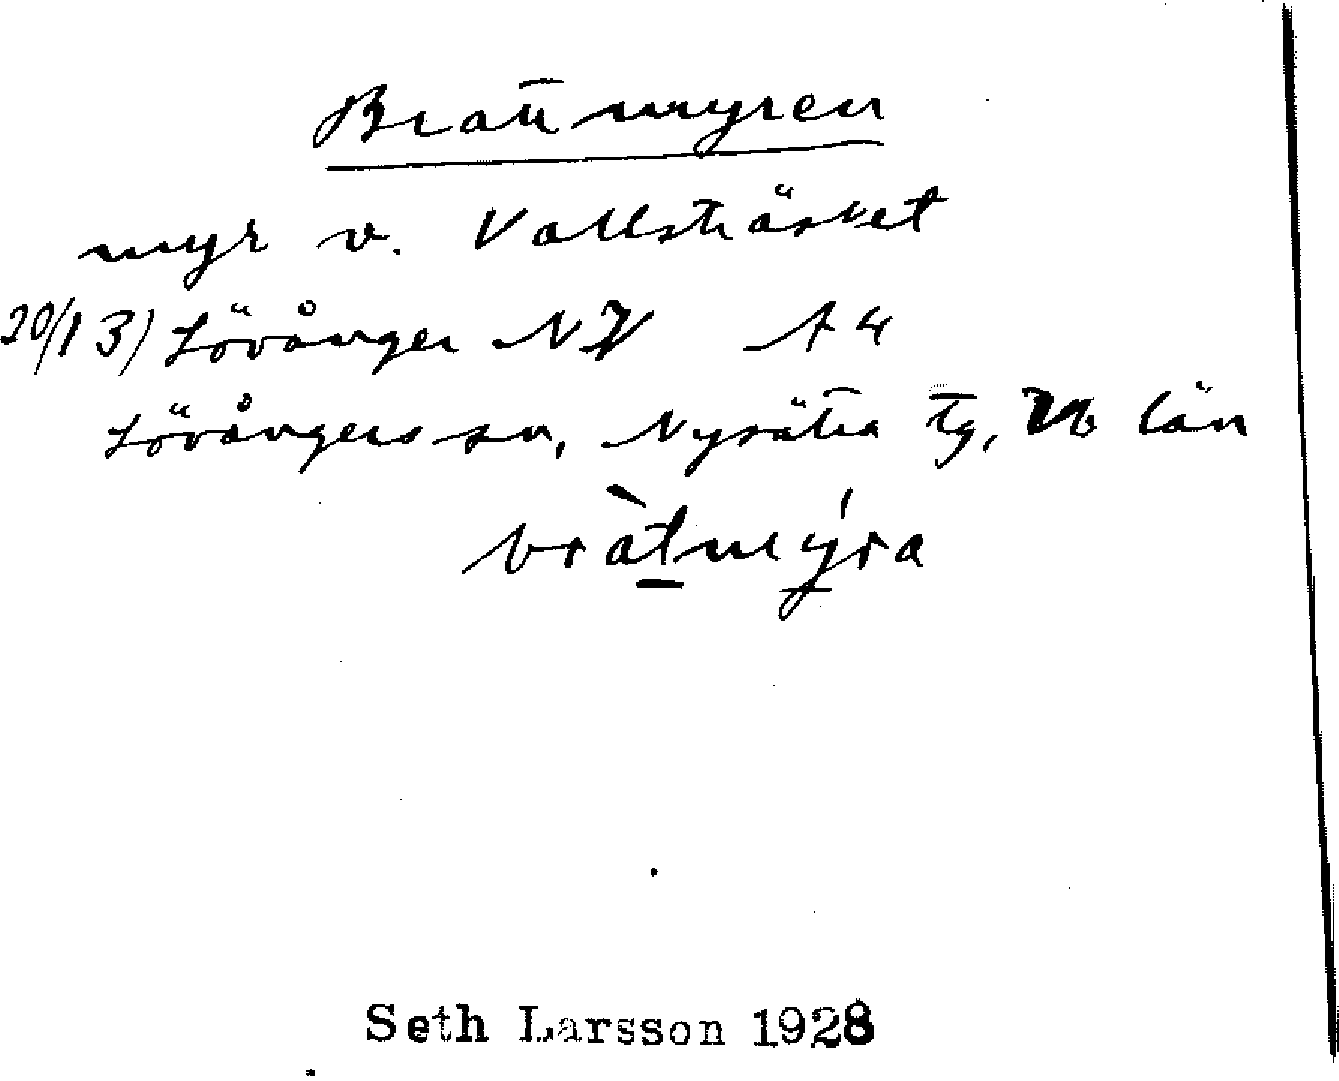 Brattmyren
myr v. Vallsträsket
20/13) Lövånger NV A4
Lövångers sn, Nysätra tg, Vb län
bràtmýra
Seth Larsson 1928